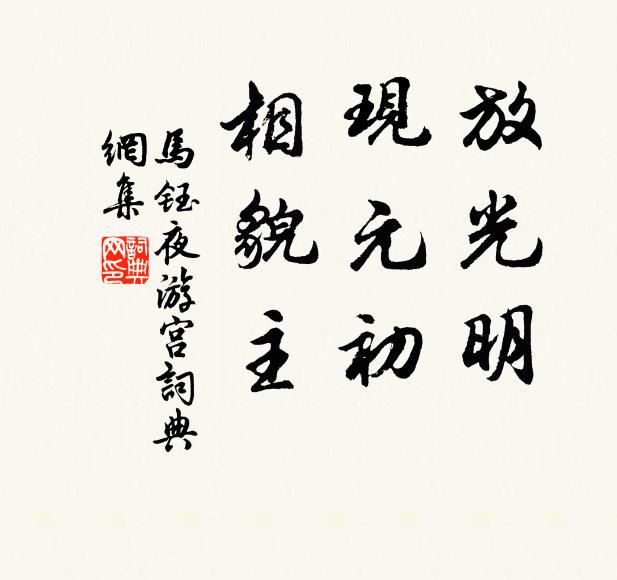 放光明
現元初
相貌主
馬鈺夜游宮詞典
網集
詞典網印